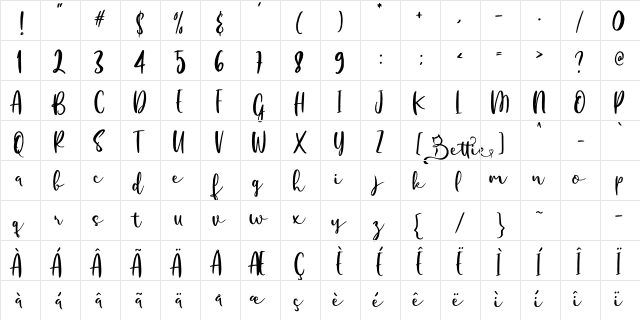 ! " # $ % & ' ( ) * + , - . / 0
1 2 3 4 5 6 7 8 9 : ; < = > ? @
A B C D E F G H I J K L M N O P
Q R S T U V W X Y Z [ Bettie ] ^ _ `
a b c d e f g h i j k l m n o p
q r s t u v w x y z { / } ~ -
À Á Â Ã Ä Å Æ Ç È É Ê Ë Ì Í Î Ï
à á â ã ä å æ ç è é ê ë ì í î ï